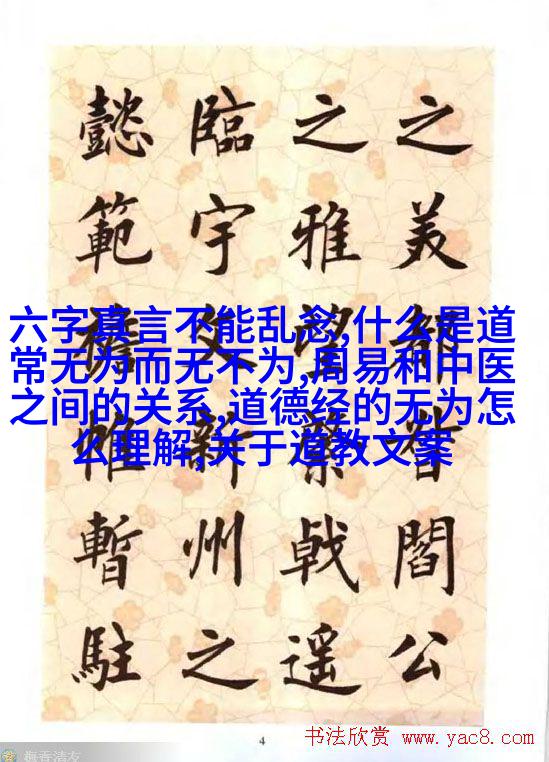 之美都督閻公
之雅望棨戟遥
臨宇文新州之
懿範襜帷暫駐
六字真言不能乱念,什么是道
常无为而无不为,周易和中医
之间的关系,道德经的无为怎
么理解,关于道教文案
4
书法欣赏 www.yac8.com
梅香清友